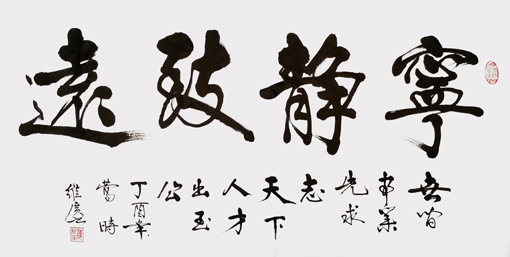 寧静致遠
世間
事業
先求
志
天下
人才
出至
公
丁酉年
時
維